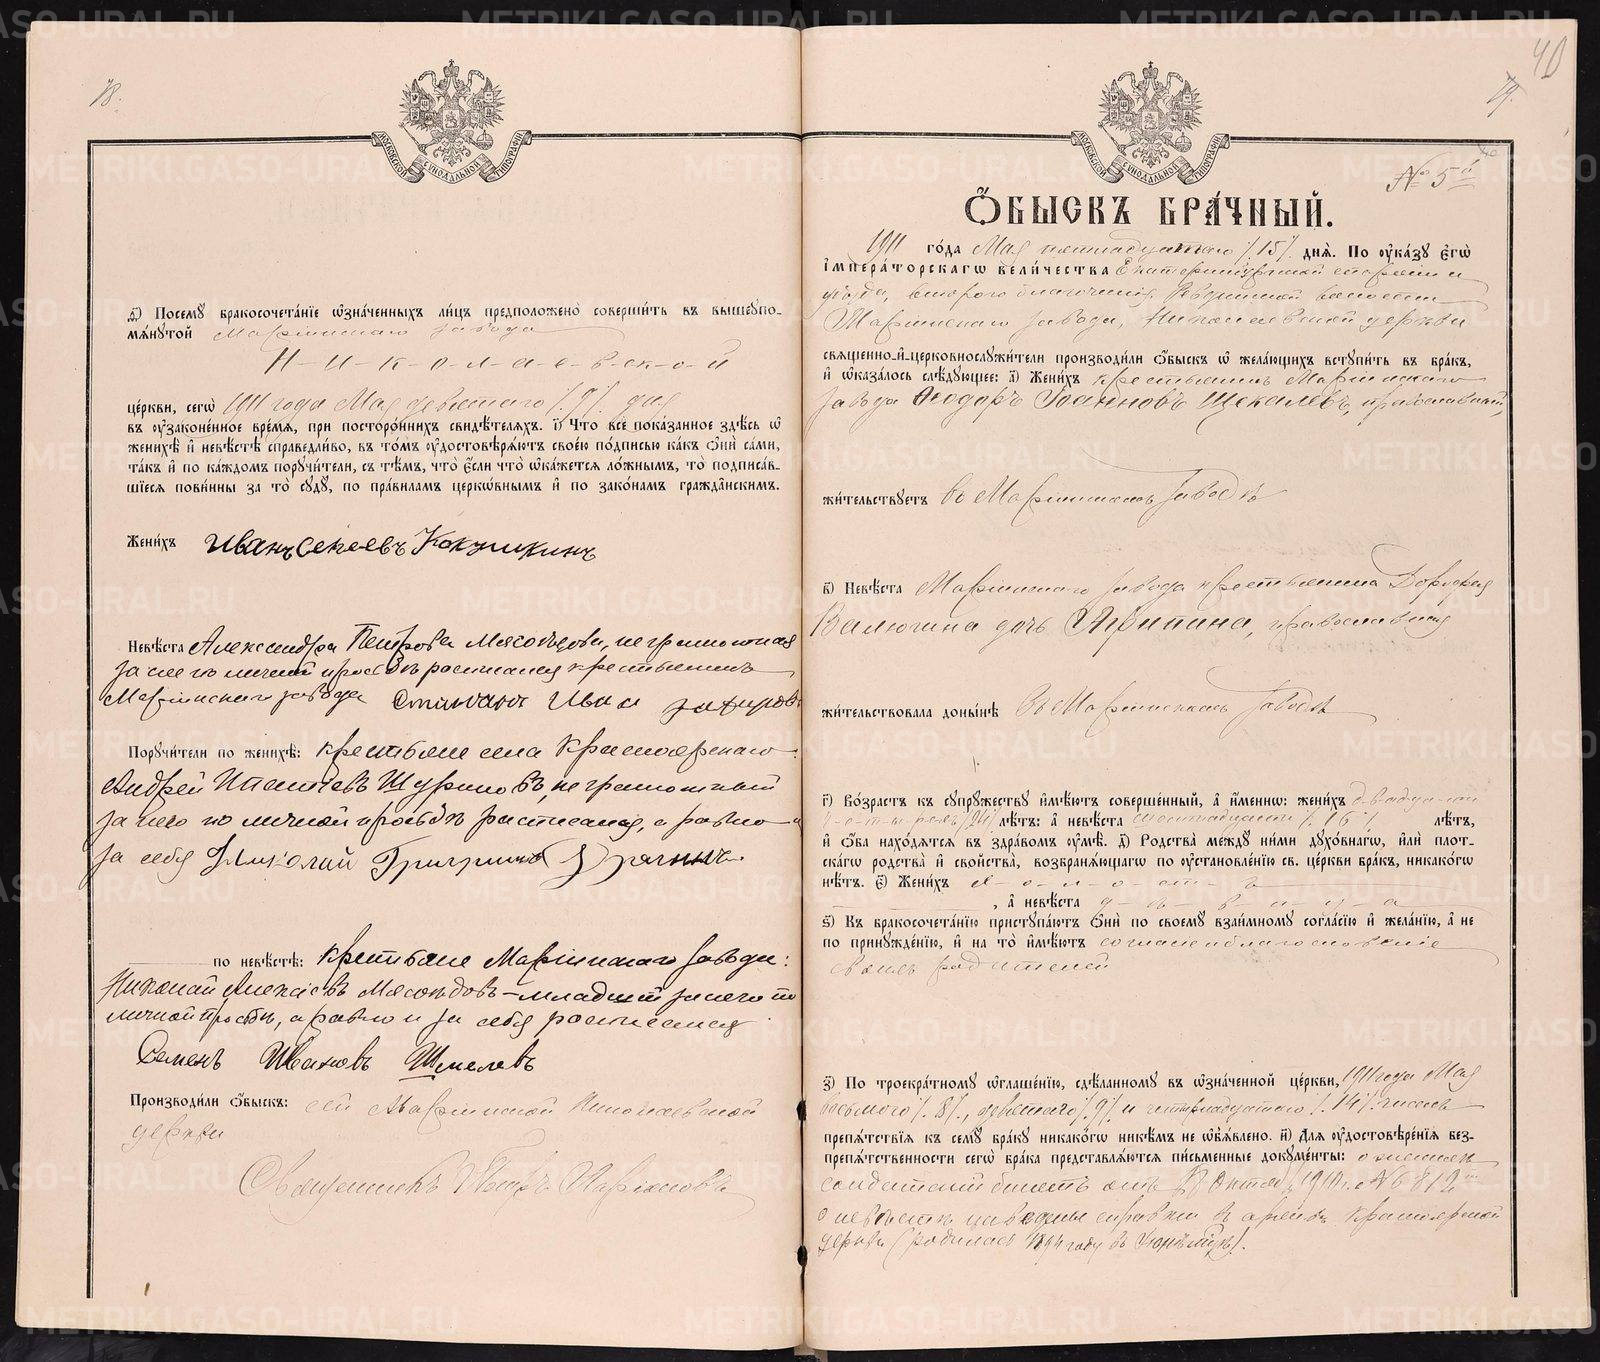 78.
МОСКОВСКОЙ СѴНОДАЛЬНОЙ ТИПОГРАФІИ
д҃) Посемꙋ бракосочета́нїе ѡ҆зна́ченныхъ ли́цъ предположено̀ соверши́ть въ вышеꙋпо-
мѧ́нꙋтой Маріинскаго завода
Н-и-к-о-л-а-е-в-ск-о-й
це́ркви, сегѡ̀ 1911 года Мая девятаго /9/ дня
въ ᲂу҆зако́ненное вре́мѧ, при посторо́ннихъ свидѣ́телѧхъ. і҃) Что̀ всѐ пока́занное здѣ́сь ѡ҆
женихѣ̀ и҆ невѣ́стѣ справедли́во, въ то́мъ ᲂу҆достовѣрѧ́ютъ свое́ю по́дписью ка́къ ѻ҆нѝ са́ми,
та́къ и҆ по ка́ждомъ порꙋчи́тели, съ тѣ́мъ, что̀ є҆́сли что̀ ѡ҆ка́жетсѧ ло́жнымъ, то̀ подписа́в-
шїесѧ пови́нны за то̀ сꙋдꙋ̀, по пра́виламъ церко́внымъ и҆ по зако́намъ гражда́нскимъ.
Жени́хъ Иванъ Кокушкинъ
Невѣ́ста Александра Петрова неграмотная
за нее по личной просьбѣ росписался крестьянинъ
Маріинскаго завода Степанъ
Порꙋчи́тели по женихѣ̀: крестьяне села Красноярскаго
Андрей Ипатіевъ неграмотный
за него по личной просьбѣ росписался, а равно и
за себя Николай
по невѣ́стѣ: крестьяне Маріинскаго завода:
Николай Алексѣевъ Мясоѣдовъ-младшій за него по
личной просьбѣ, а равно и за себя росписался
Семенъ Ивановъ Шмелевъ
Производи́ли ѻ҆́быскъ: сей Маріинской Николаевской
церкви
Священникъ Петръ
40
79.
№ 5й
МОСКОВСКОЙ СѴНОДАЛЬНОЙ ТИПОГРАФІИ
Ѻ҆́БЫСКЪ БРА́ЧНЫЙ.
1911 го́да Мая пятнадцатаго /15/ днѧ̀. По ᲂу҆ка́зꙋ є҆гѡ̀
і҆мпера́торскагѡ вели́чества Екатеринбургской епархіи и
уѣзда, второго благочинія, Ревдинской волости
Маріинскаго завода, Николаевской церкви
свѧщенно-и҆-церковнослꙋжи́тели производи́ли ѻ҆́быскъ ѡ҆ жела́ющихъ встꙋпи́ть въ бра́къ,
и҆ ѡ҆каза́лось слѣ́дꙋющее: а҃) Жени́хъ крестьянинъ Маріинскаго
завода Ѳеодоръ Іоанновъ Щекалевъ, православный,
жи́тельствꙋетъ въ Маріинскомъ заводѣ
в҃) Невѣ́ста Маріинскаго завода крестьянина Дорофея
Валюгина дочь Агрипина, православная
жи́тельствовала доны́нѣ въ Маріинскомъ заводѣ
г҃) Во́зрастъ къ сꙋпрꙋ́жествꙋ и҆мѣ́ютъ соверше́нный, а҆ и҆́менно: жени́хъ двадцати
ч-е-т-ы-рехъ /24/ лѣ́тъ: а҆ невѣ́ста шестнадцати /16/ лѣ́тъ,
и҆ ѻ҆́ба нахо́дѧтсѧ въ здра́вомъ ᲂу҆мѣ̀. д҃) Родства̀ междꙋ ни́ми дꙋхо́внагѡ, и҆лѝ плот-
ска́гѡ родства̀ и҆ сво́йства, возбранѧ́ющагѡ по ᲂу҆становле́нїю св. це́ркви бра́къ, никако́гѡ
нѣ́тъ. є҃) Жени́хъ х-о-л-о-ст-ъ
, а҆ невѣ́ста д-ѣ-в-и-ц-а
ѕ҃) Къ бракосочета́нїю пристꙋпа́ютъ ѻ҆нѝ по своемꙋ̀ взаи́мномꙋ согла́сїю и҆ жела́нїю, а҆ не
по принꙋжде́нїю, и҆ на то̀ и҆мѣ́ютъ согласіе и благословеніе
своихъ родителей
з҃) По троекра́тномꙋ ѡ҆глаше́нїю, сдѣ́ланномꙋ въ ѡ҆зна́ченной це́ркви, 1911 года Мая
восьмого /8/, девятаго /9/ и четырнадцатаго /14/ чиселъ
препѧ́тствїѧ къ семꙋ̀ бра́кꙋ никако́гѡ никѣ́мъ не ѡ҆б̾ѧ́влено. и҃) Длѧ ᲂу҆достовѣре́нїѧ без-
препѧ́тственности сегѡ̀ бра́ка представлѧ́ютсѧ пи́сьменные докꙋме́нты: о женихѣ
солдатскій билетъ отъ Октября 1910 г. № 6812
о невѣстѣ наведены справки въ архивѣ Красноярской
церкви (родилась 1894 году въ